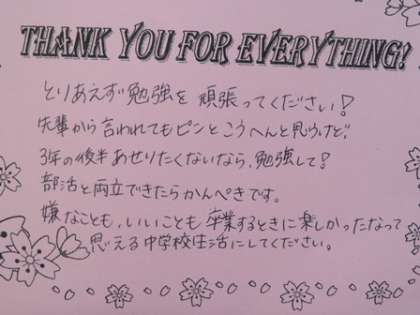 THANK YOU FOR EVERYTHING!
とりあえず勉強を頑張ってください！
先輩から言われてもピンとこうへんと思うけど、
3年の後半あせりたくないなら、勉強して！
部活と両立できたらかんぺきです。
嫌なことも、いいことも卒業するときに楽しかったなって
思える中学校生活にしてください。